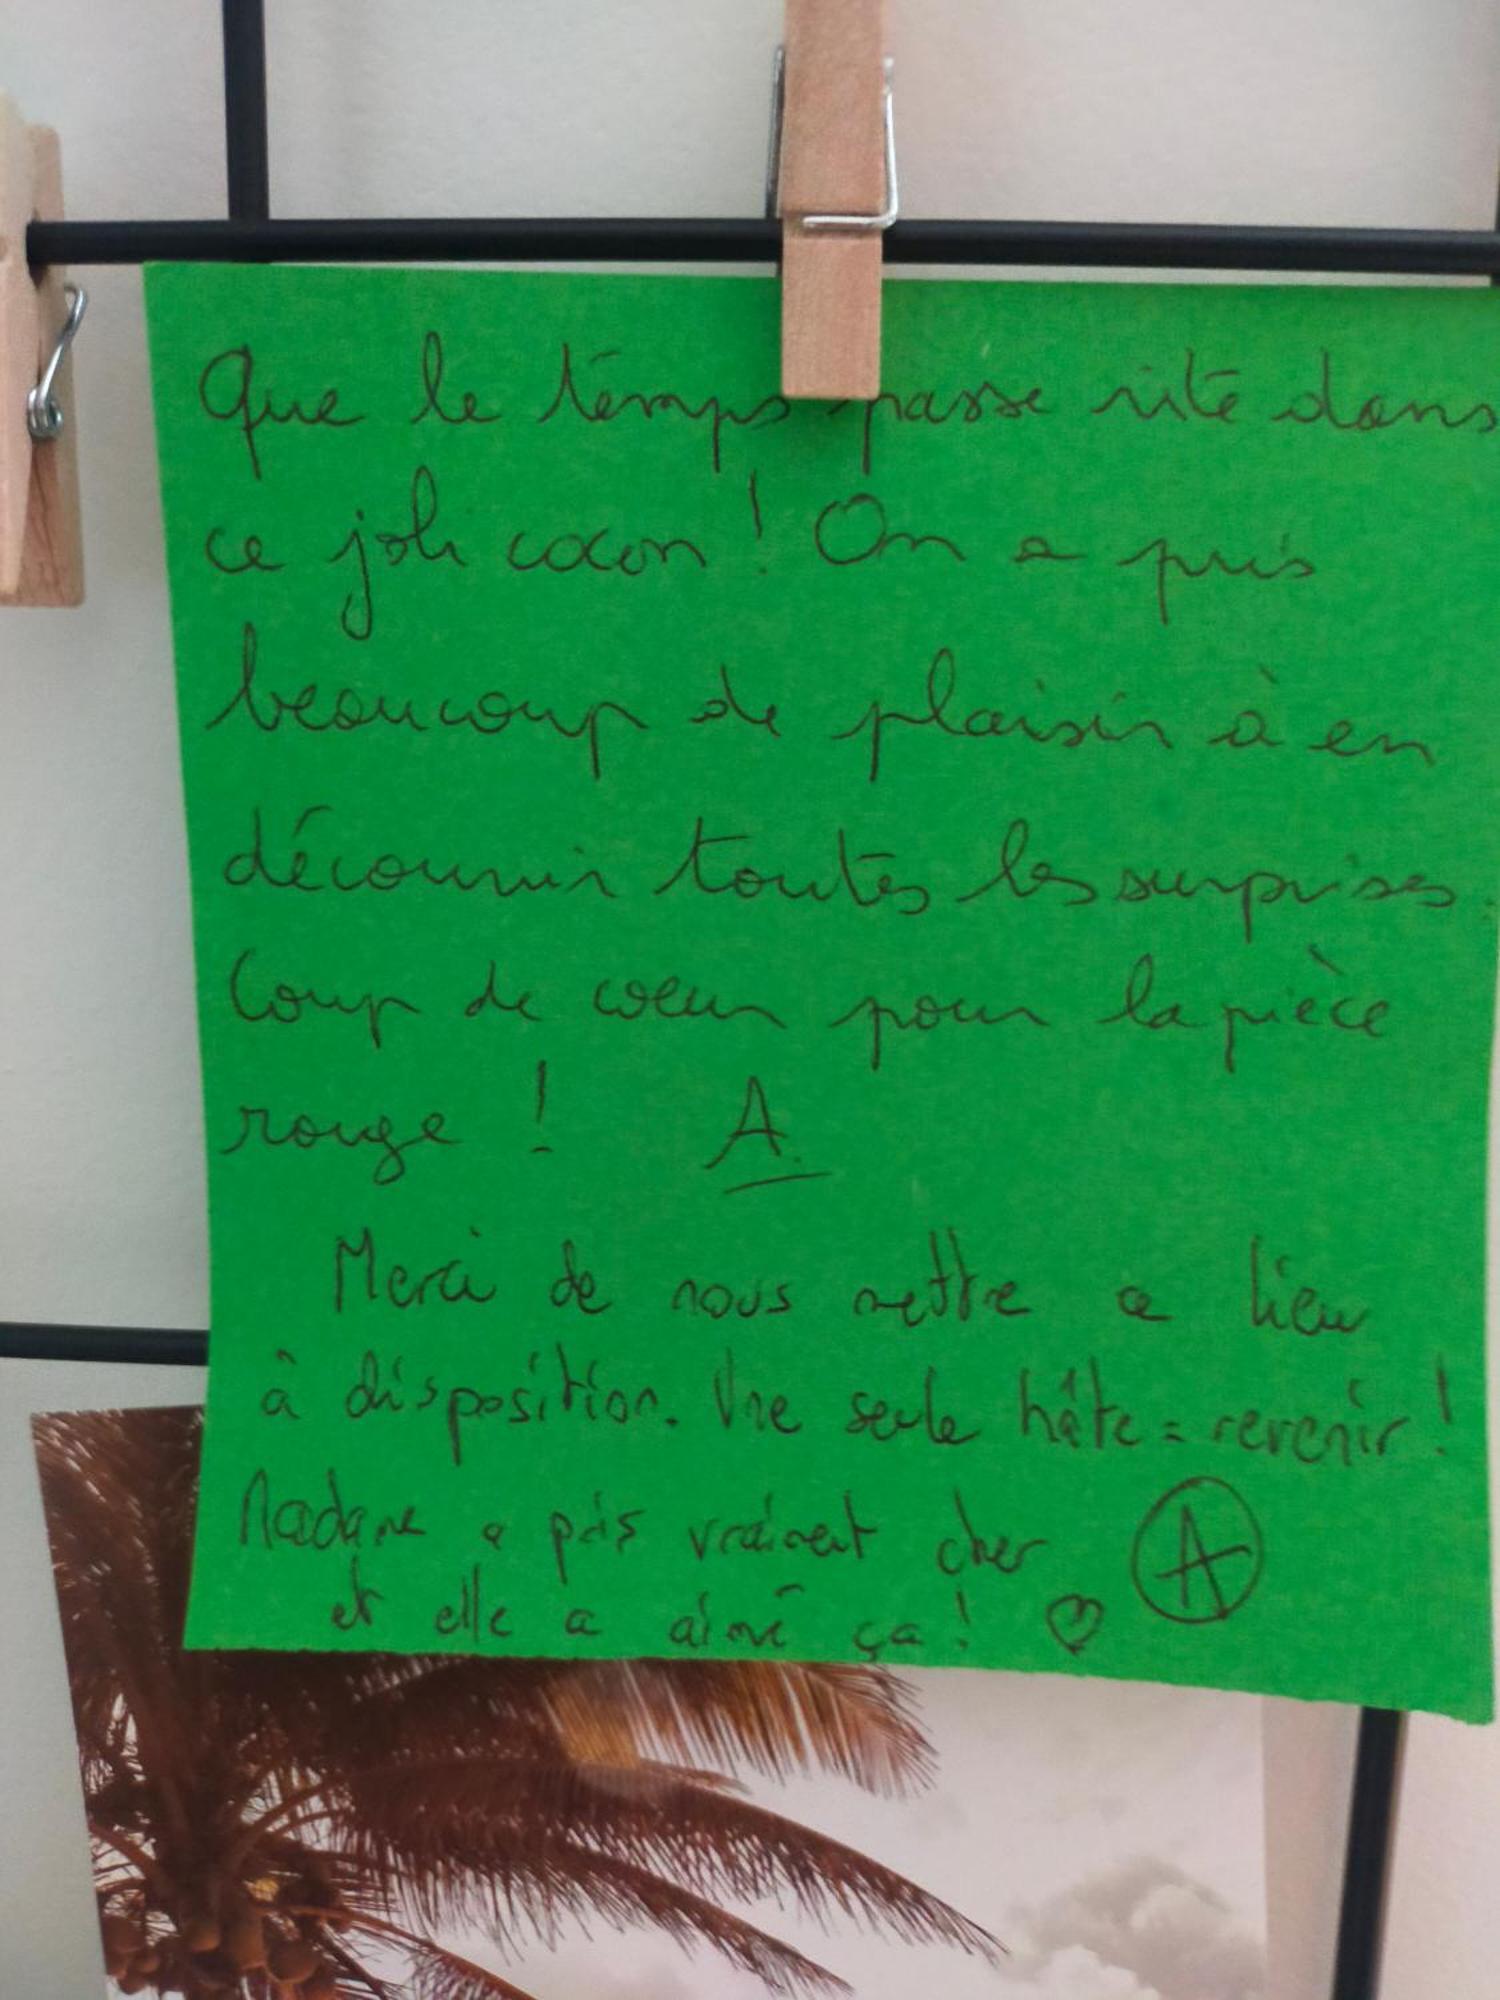 Que le temps passe vite dans
ce joli cocon ! On a pris
beaucoup de plaisir à en
découvrir toutes les surprises.
Coup de coeur pour la pièce
rouge ! A.
Merci de nous mettre ce lieu
à disposition. Une seule hâte = revenir !
Madame a pris vraiment cher A
et elle a aimé ça ! ♡